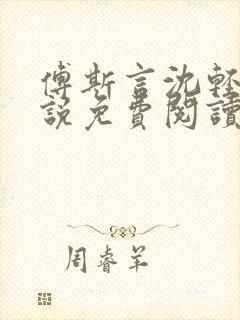 傅斯言沈輕
說免費閱讀
周睿羊